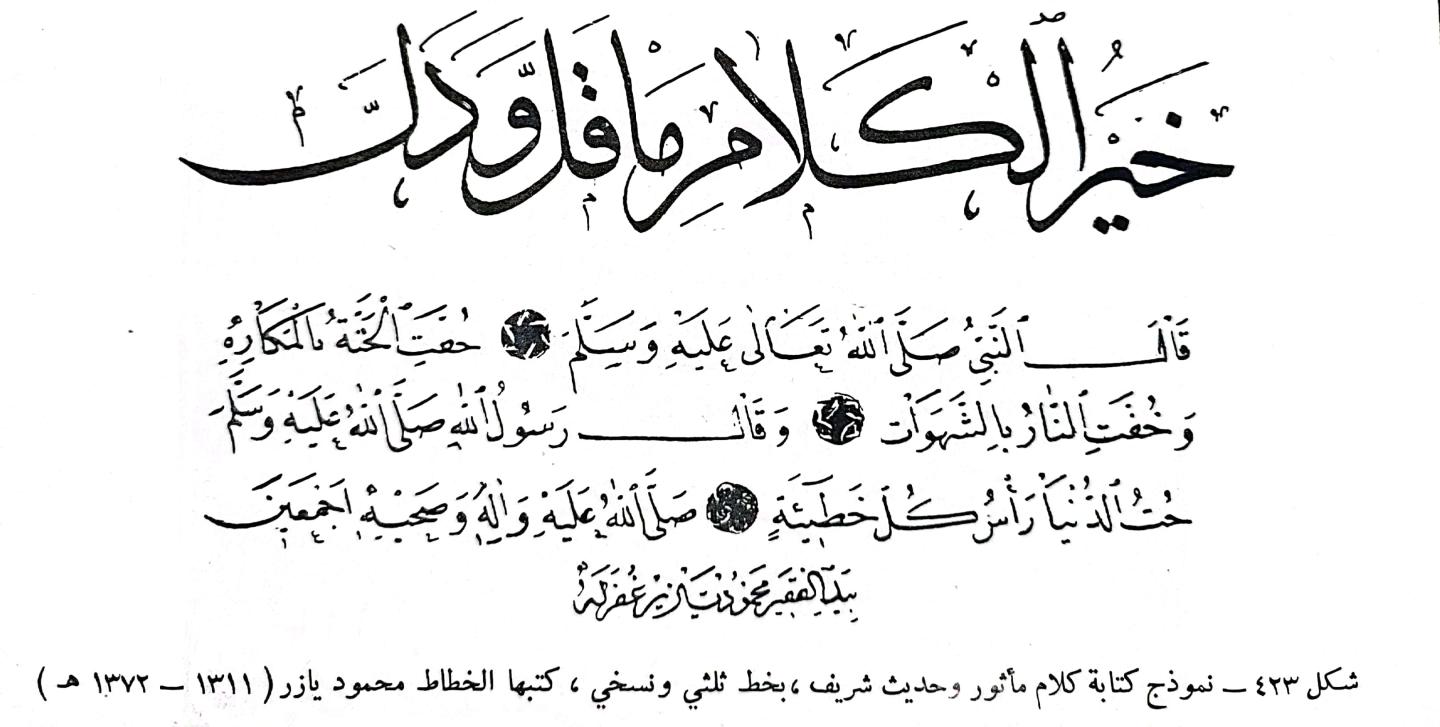 خَيْرُ الْكَلَامِ مَا قَلَّ وَدَلَّ
قَالَ النَّبِيُّ صَلَّى اللهُ تَعَالَى عَلَيْهِ وَسَلَّمَ حُفَّتِ الْجَنَّةُ بِالْمَكَارِهِ
وَحُفَّتِ النَّارُ بِالشَّهَوَاتِ وَقَالَ رَسُولُ اللهِ صَلَّى اللهُ عَلَيْهِ وَسَلَّمَ
حُبُّ الدُّنْيَا رَأْسُ كُلِّ خَطِيئَةٍ صَلَّى اللهُ عَلَيْهِ وَآلِهِ وَصَحْبِهِ اَجْمَعِينَ
بِيَدِ الْفَقِيرِ مَحْمُود يَازِر غُفِرَ لَهُ
شكل ٤٢٣ – نموذج كتابة كلام مأثور وحديث شريف ، بخط ثلثي ونسخي ، كتبها الخطاط محمود يازر ( ١٣١١ – ١٣٧٢ هـ )